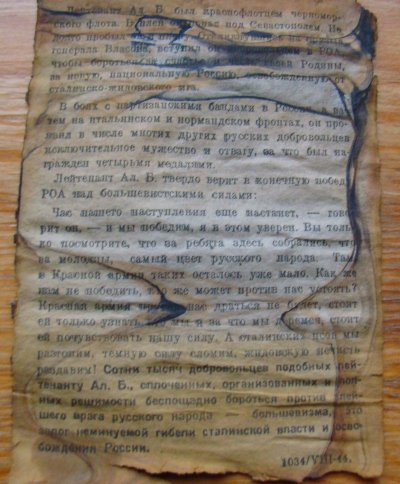 Лейтенант Ал. Б. был краснофлотцем черномор-
ского флота. В плен он попал под Севастополем. Не
долго пробыл он в плену.
генерала Власова, вступил он добровольцем в РОА,
чтобы бороться за счастье и своей Родины,
за новую, национальную Россию, освобожденную от
сталинско-жидовского ига.
В боях с партизанскими бандами в России, а за-
тем на итальянском и нормандском фронтах, он про-
явил в числе многих других русских добровольцев
исключительное мужество и отвагу, за что был на-
гражден четырьмя медалями.
Лейтенант Ал. Б. твердо верит в конечную победу
РОА над большевистскими силами:
Час нашего наступления еще настанет, — гово-
рит он, — и мы победим, я в этом уверен. Вы толь-
ко посмотрите, что за ребята здесь собрались, что
за молодцы, самый цвет русского народа. Там
в Красной армии таких осталось уже мало. Как же
нам не победить, кто же может против нас устоять?
Красная армия против нас драться не будет, стоит
ей только узнать, кто мы и за что мы деремся, стоит
ей почувствовать нашу силу. А сталинских псов мы
разгоним, темную силу сломим, жидовскую нечисть
раздавим! Сотни тысяч добровольцев подобных лей-
тенанту Ал. Б., сплоченных, организованных и пол-
ных решимости беспощадно бороться против злей-
шего врага русского народа — большевизма, это
залог неминуемой гибели сталинской власти и осво-
бождения России.
1034/VIII-44.